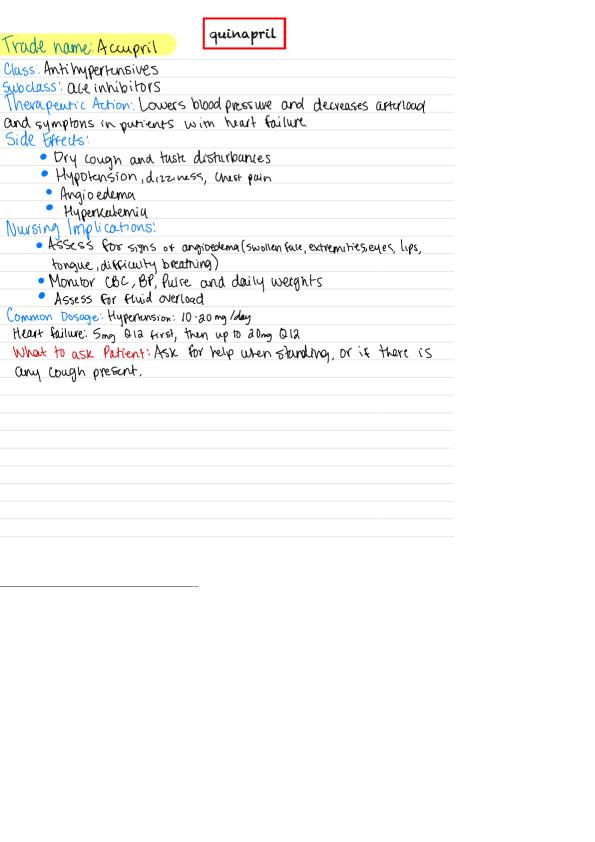 quinapril
Trade name: Accupril
Class: Antihypertensives
Subclass: ace inhibitors
Therapeutic Action: Lowers blood pressure and decreases afterload
and symptons in patients with heart failure
Side Effects:
• Dry cough and taste disturbances
• Hypotension, dizziness, chest pain
• Angioedema
• Hyperkalemia
Nursing Implications:
• Assess for signs of angioedema (swollen face, extremities, eyes, lips,
tongue, difficulty breathing)
• Monitor CBC, BP, Pulse and daily weights
• Assess for fluid overload
Common Dosage: Hypertension: 10-20 mg/day
Heart failure: 5mg Q12 first, then up to 20mg Q12
What to ask Patient: Ask for help when standing, or if there is
any cough present.